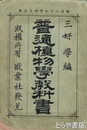 三好學編
普通植物學教科書
版權所有 敬業社發兌